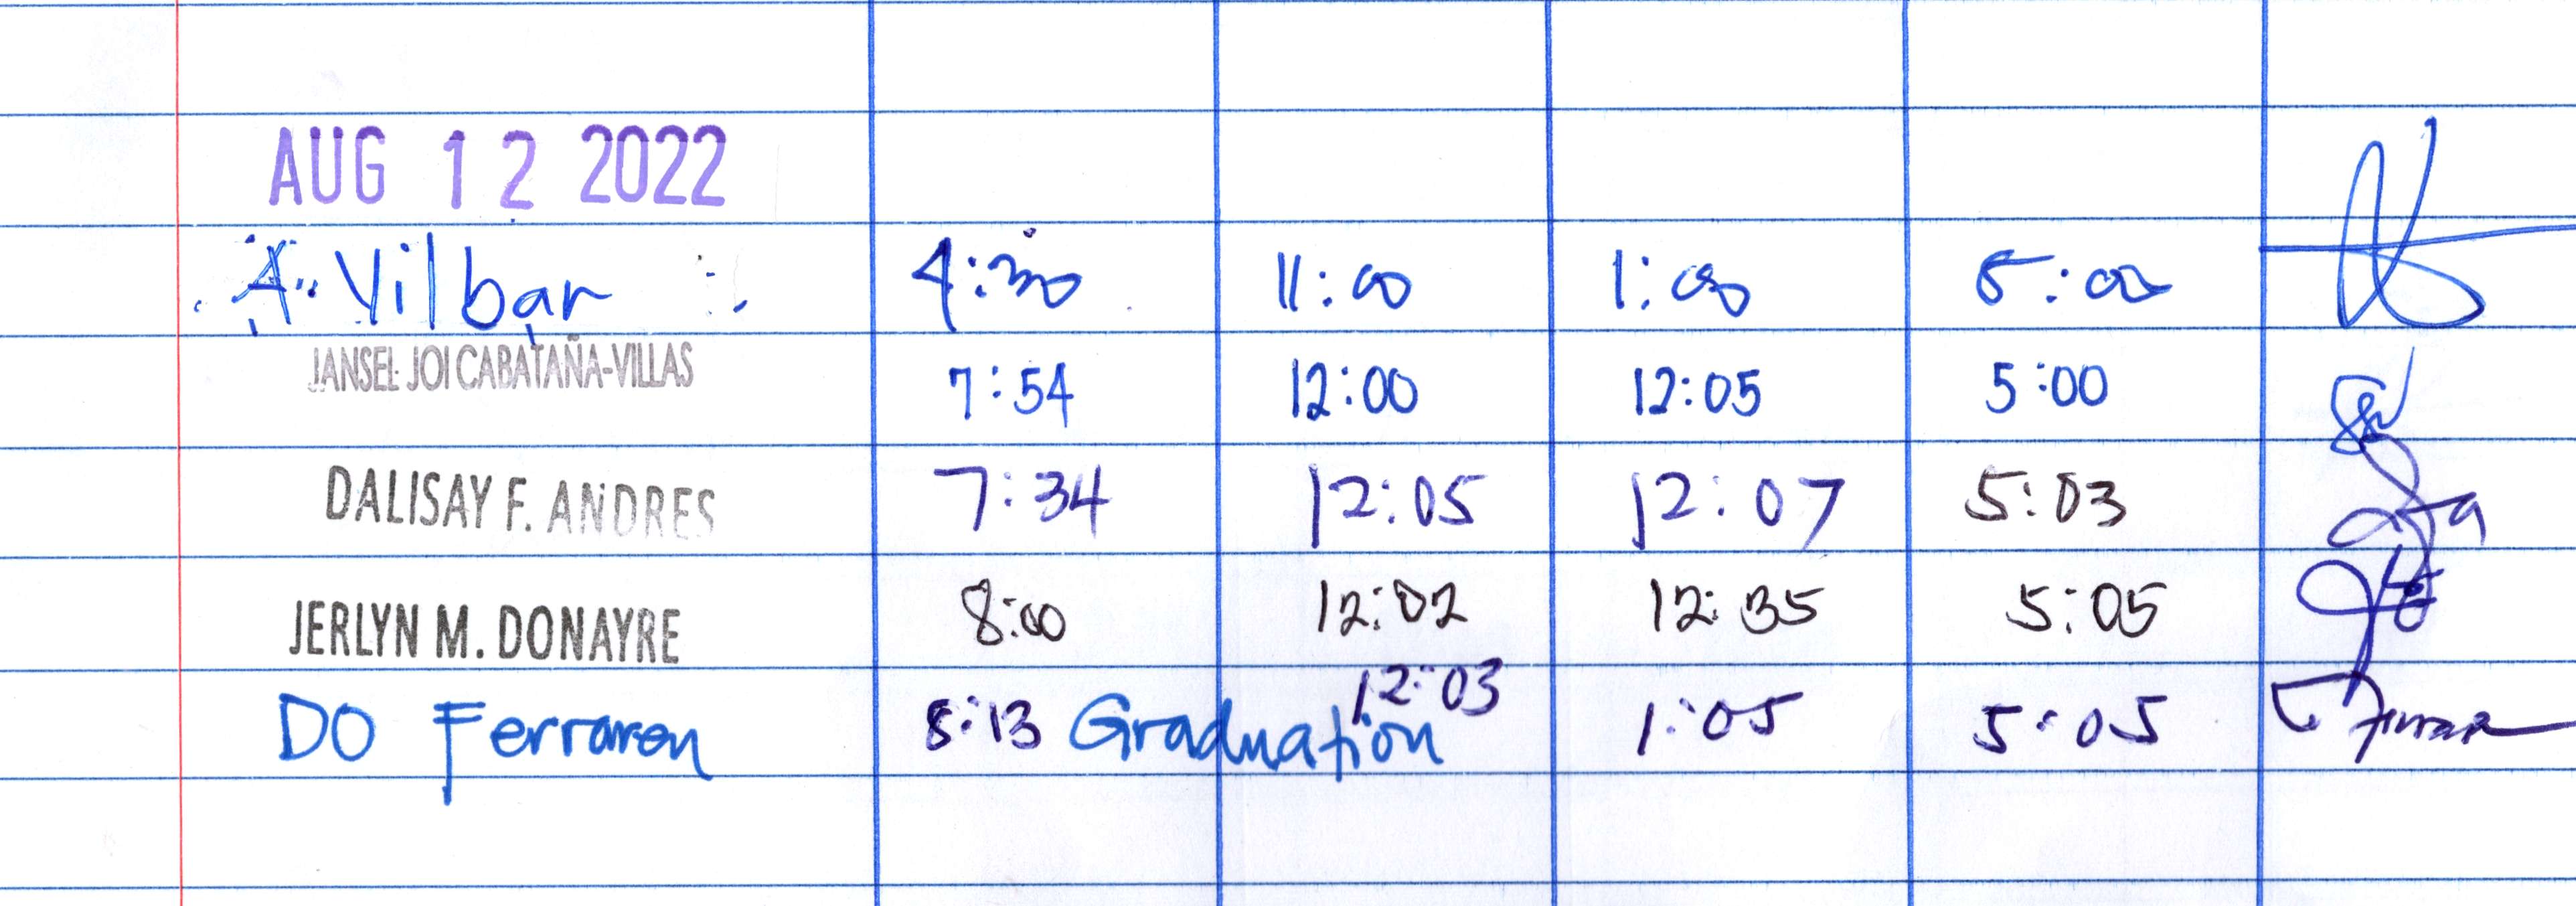 AUG 12 2022
A. Vilbar 4:30 11:00 1:00 5:00
JANSEL JOI CABATAÑA-VILLAS 7:54 12:00 12:05 5:00
DALISAY F. ANDRES 7:34 12:05 12:07 5:03
JERLYN M. DONAYRE 8:00 12:02 12:35 5:05
DO Ferraren 8:13 Graduation 12:03 1:05 5:05